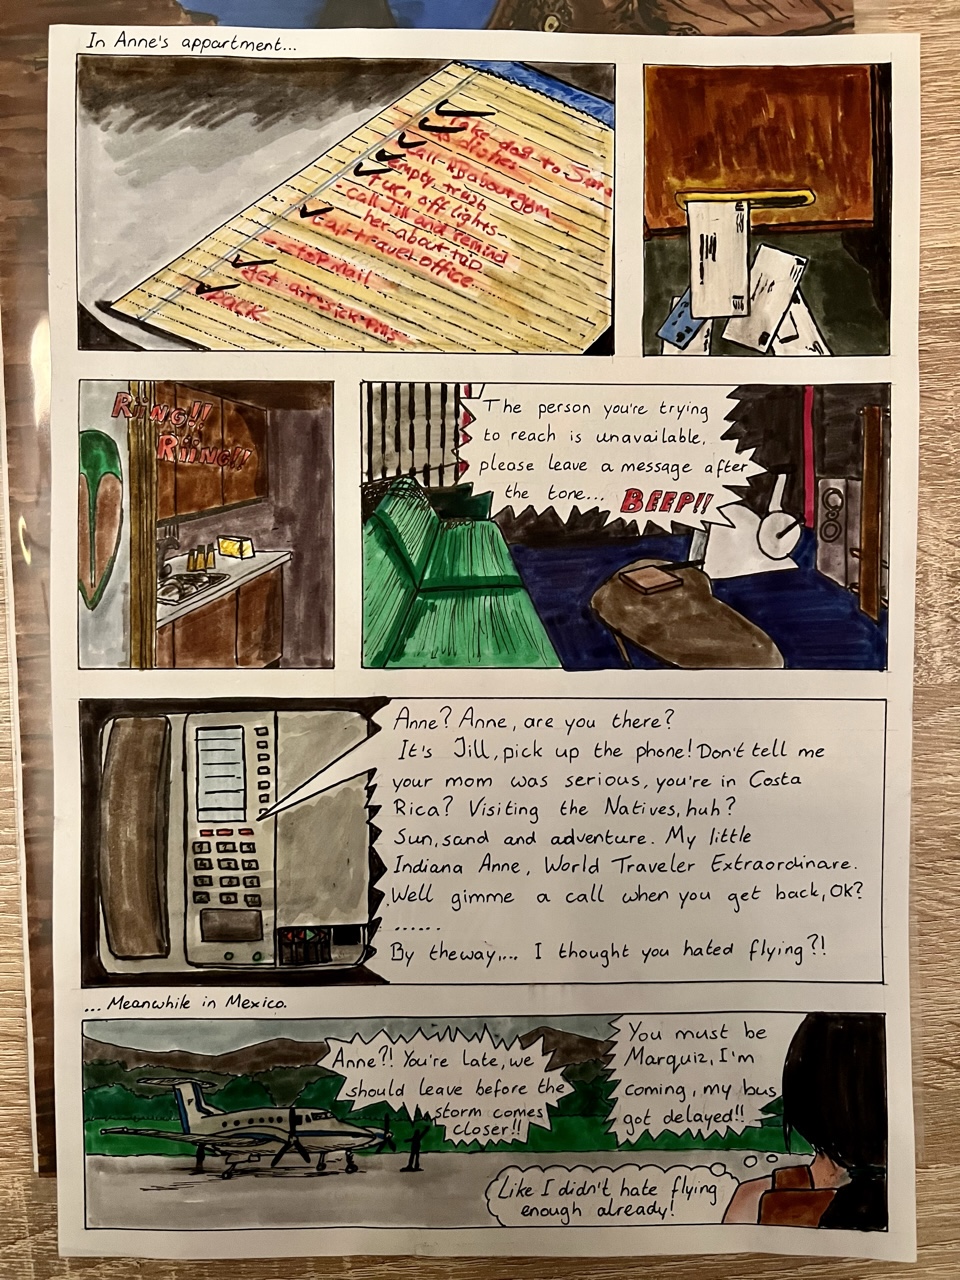 In Anne's appartment...
Take dog to Sara
do dishes
call KD about Jam
empty trash
Turn off lights
- call Jill and remind
her about trip
call travel office
- stop mail
Get airsick pills
pack
RiiNG!!
RiiNG!!
The person you're trying
to reach is unavailable,
please leave a message after
the tone... BEEP!!
Anne? Anne, are you there?
It's Jill, pick up the phone! Don't tell me
your mom was serious, you're in Costa
Rica? Visiting the Natives, huh?
Sun, sand and adventure. My little
Indiana Anne, World Traveler Extraordinare.
Well gimme a call when you get back, OK?
......
By the way,... I thought you hated flying?!
... Meanwhile in Mexico.
Anne?! You're late, we
should leave before the
storm comes
closer!!
You must be
Marquiz, I'm
coming, my bus
got delayed!!
Like I didn't hate flying
enough already!